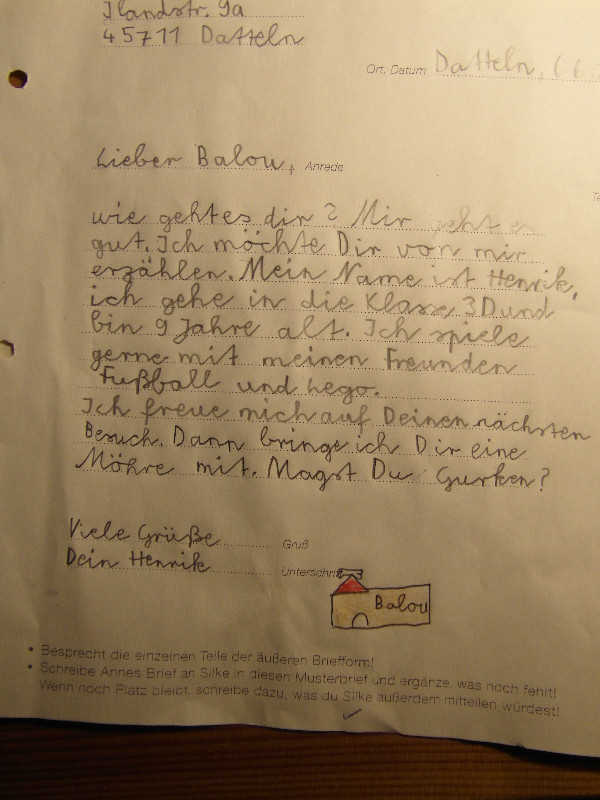 Jlandstr. 9a
45711 Datteln
Ort, Datum Datteln, 16.
Lieber Balou, Anrede
wie geht es dir? Mir geht es
gut. Ich möchte Dir von mir
erzählen. Mein Name ist Henrik,
ich gehe in die Klasse 3D und
bin 9 Jahre alt. Ich spiele
gerne mit meinen Freunden
Fußball und Lego.
Ich freue mich auf Deinen nächsten
Besuch. Dann bringe ich Dir eine
Möhre mit. Magst Du Gurken?
Viele Grüße Gruß
Dein Henrik Unterschrift
Balou
• Besprecht die einzelnen Teile der äußeren Briefform!
• Schreibe Annes Brief an Silke in diesen Musterbrief und ergänze, was noch fehlt!
Wenn noch Platz bleibt, schreibe dazu, was du Silke außerdem mitteilen würdest!